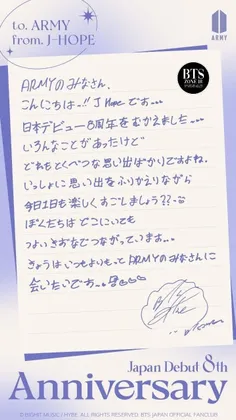 to. ARMY
from. J-HOPE
ARMY
BTS
ARMYのみなさん、
こんにちは..!! J Hopeです...
日本デビュー8周年をむかえました...
いろんなことがあったけど
どれもとくべつな思い出ばかりですよね.
いっしょに思い出をふりかえりながら
今日1日も楽しくすごしましょう??
ぼくたちはどこにいても
つよいきずなでつながっています...
きょうはいつもよりもってARMYのみなさんに
会いたいです..
Japan Debut 8th
Anniversary
© BIGHIT MUSIC / HYBE. ALL RIGHTS RESERVED. BTS JAPAN OFFICIAL FANCLUB